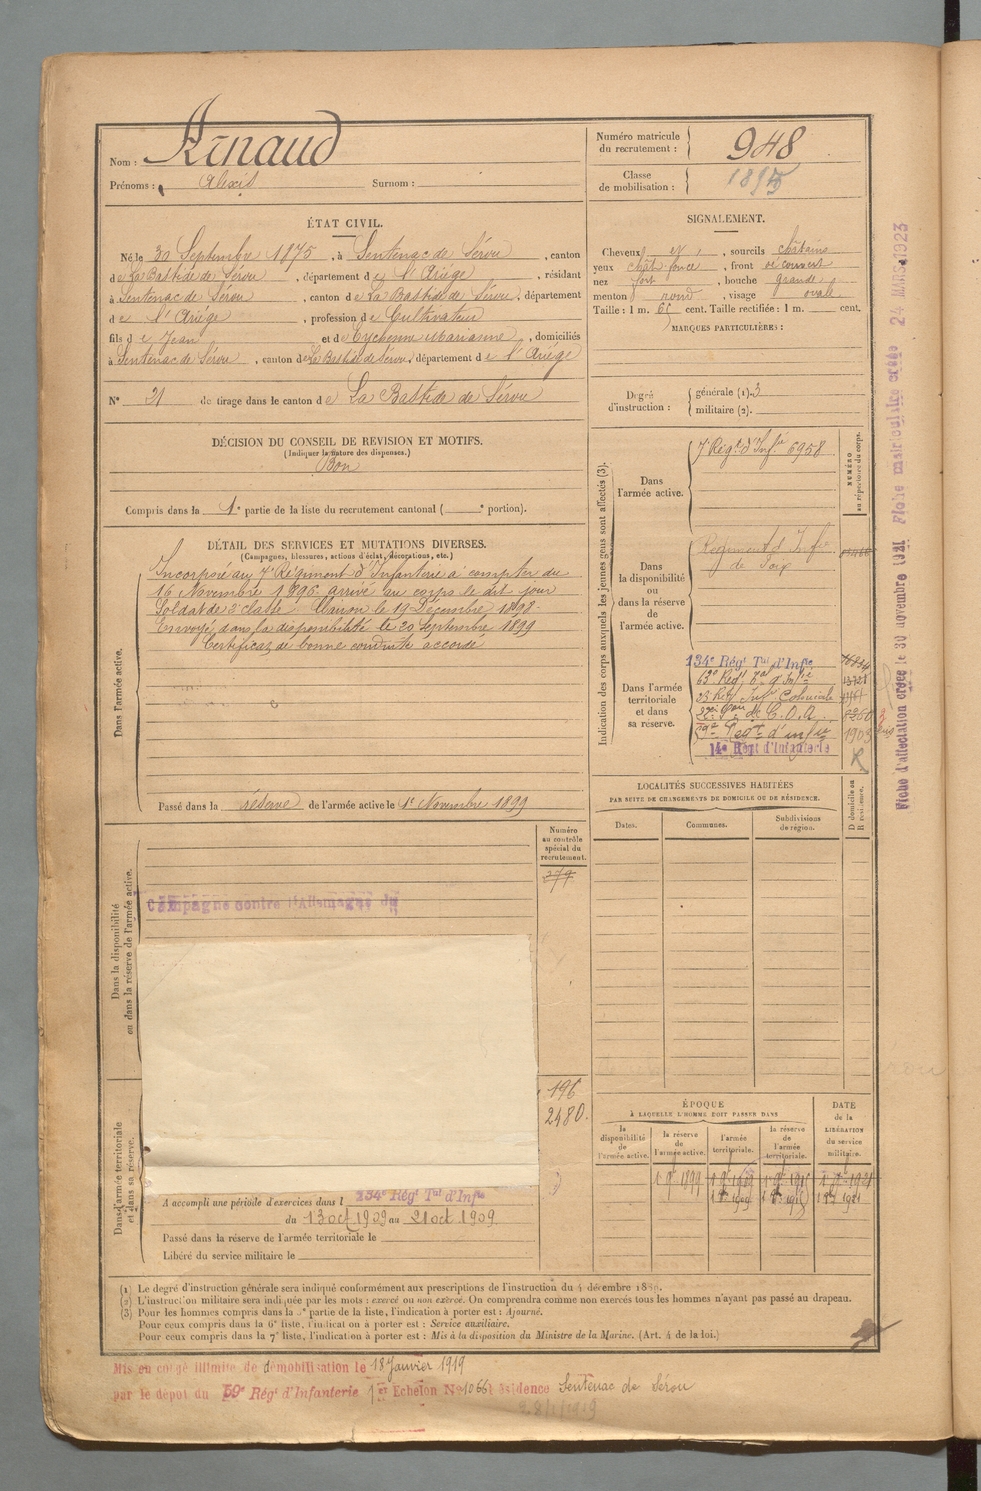 Nom : Arnaud
Prénoms : Alexis Surnom :
Numéro matricule du recrutement : 948
Classe de mobilisation : 1895
ÉTAT CIVIL.
Né le 30 Septembre 1875, à Sentenac de Sérou, canton
de La Bastide de Sérou, département de l'Ariège, résidant
à Sentenac de Sérou, canton de La Bastide de Sérou, département
de l'Ariège, profession de Cultivateur
fils de Jean et de Eychenne Marianne, domiciliés
à Sentenac de Sérou, canton de La Bastide de Sérou, département de l'Ariège
N° 21 de tirage dans le canton de La Bastide de Sérou
DÉCISION DU CONSEIL DE REVISION ET MOTIFS.
(Indiquer la nature des dispenses.)
Bon
Compris dans la 1e partie de la liste du recrutement cantonal ( e portion).
DÉTAIL DES SERVICES ET MUTATIONS DIVERSES.
(Campagnes, blessures, actions d'éclat, décorations, etc.)
Dans l'armée active.
Incorporé au 7e Régiment d'Infanterie à compter du
16 Novembre 1896. arrivé au corps le dit jour
Soldat de 2e classe. Clairon le 19 Décembre 1898.
Envoyé dans la disponibilité le 20 Septembre 1899
Certificat de bonne conduite accordé
Passé dans la réserve de l'armée active le 1er Novembre 1899
Dans la disponibilité ou dans la réserve de l'armée active.
Numéro au contrôle spécial du recrutement.
279
Campagne contre l'Allemagne du
196
2480.
Dans l'armée territoriale et dans sa réserve.
A accompli une période d'exercices dans l 134e Régt Tal d'Infie
du 13 oct 1909 au 21 oct 1909
Passé dans la réserve de l'armée territoriale le
Libéré du service militaire le
SIGNALEMENT.
Cheveux et, sourcils châtains
yeux chât foncé, front découvert
nez fort, bouche grande
menton rond, visage ovale
Taille : 1 m. 65 cent. Taille rectifiée : 1 m. cent.
MARQUES PARTICULIÈRES :
Degré d'instruction : générale (1). 3
militaire (2).
Indication des corps auxquels les jeunes gens sont affectés (3).
NUMÉRO au répertoire du corps.
Dans l'armée active.
7e Régt d'Infie 6958
Dans la disponibilité ou dans la réserve de l'armée active.
Régiment d'Infie
de Foix
Dans l'armée territoriale et dans sa réserve.
134e Régt Tal d'Infie
63e Régt Tal d'Infie
23 Rég Infie Coloniale
22e Son de C.O.A. 8260
59e Regt d'infie 1903
14e Régt d'Infanterie
LOCALITÉS SUCCESSIVES HABITÉES
PAR SUITE DE CHANGEMENTS DE DOMICILE OU DE RÉSIDENCE.
Dates. Communes. Subdivisions de région. D domicile ou R résidence.
ÉPOQUE
À LAQUELLE L'HOMME DOIT PASSER DANS
la disponibilité de l'armée active. la réserve de l'armée active. l'armée territoriale. la réserve de l'armée territoriale.
DATE de la LIBÉRATION du service militaire.
Fiche d'affectation créée le 30 novembre 1921 Fiche matriculaire créée 24 MARS 1923
(1) Le degré d'instruction générale sera indiqué conformément aux prescriptions de l'instruction du 4 décembre 1889.
(2) L'instruction militaire sera indiquée par les mots : exercé ou non exercé. On comprendra comme non exercés tous les hommes n'ayant pas passé au drapeau.
(3) Pour les hommes compris dans la 5e partie de la liste, l'indication à porter est : Ajourné.
Pour ceux compris dans la 6e liste, l'indication à porter est : Service auxiliaire.
Pour ceux compris dans la 7e liste, l'indication à porter est : Mis à la disposition du Ministre de la Marine. (Art. 4 de la loi.)
Mis en congé illimité de démobilisation le 18 Janvier 1919
par le dépôt du 59e Régt d'Infanterie 1er Echelon No 1066 résidence Sentenac de Sérou